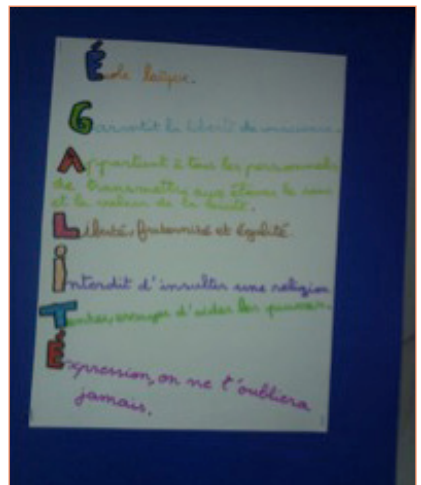 École laïque.
Garantit la liberté de conscience.
Appartient à tous les personnels
de transmettre aux élèves le sens
et la valeur de la
Liberté, fraternité et égalité.
Interdit d'insulter une religion
essayer d'aider les
Expression, on ne t'oubliera
jamais.